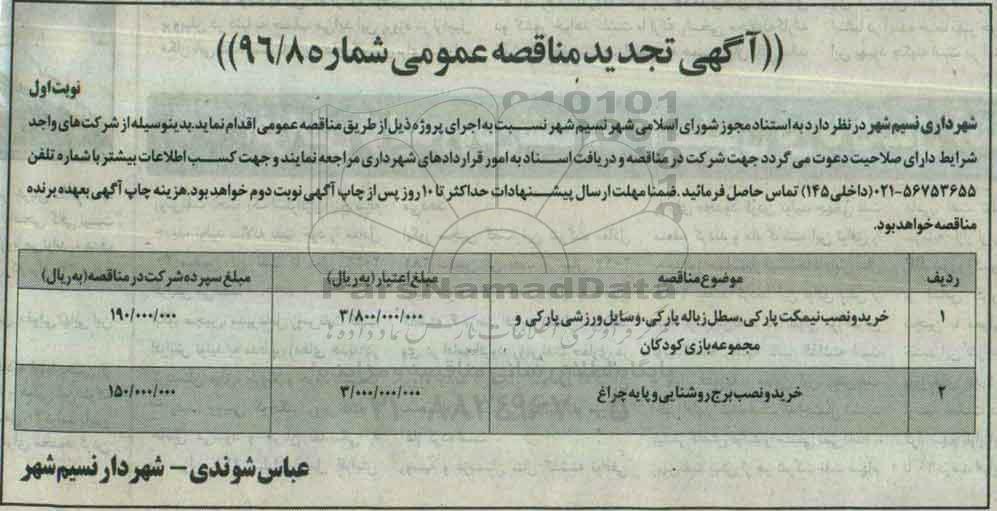 ((آگهی تجدید مناقصه عمومی شماره ۹۶/۸))
نوبت اول
شهرداری نسیم شهر در نظر دارد به استناد مجوز شورای اسلامی شهر نسیم شهر نسبت به اجرای پروژه ذیل از طریق مناقصه عمومی اقدام نماید. بدینوسیله از شرکت های واجد
شرایط دارای صلاحیت دعوت می گردد جهت شرکت در مناقصه و دریافت اسناد به امور قراردادهای شهرداری مراجعه نمایند و جهت کسب اطلاعات بیشتر با شماره تلفن
۰۲۱-۵۶۷۵۳۶۵۵ (داخلی ۱۴۵) تماس حاصل فرمائید. ضمنا مهلت ارسال پیشنهادات حداکثر تا ۱۰ روز پس از چاپ آگهی نوبت دوم خواهد بود. هزینه چاپ آگهی بعهده برنده
مناقصه خواهد بود.
ردیف موضوع مناقصه مبلغ اعتبار (به ریال) مبلغ سپرده شرکت در مناقصه (به ریال)
۱ خرید و نصب نیمکت پارکی، سطل زباله پارکی، وسایل ورزشی پارکی و ۳/۸۰۰/۰۰۰/۰۰۰ ۱۹۰/۰۰۰/۰۰۰
مجموعه بازی کودکان
۲ خرید و نصب برج روشنایی و پایه چراغ ۳/۰۰۰/۰۰۰/۰۰۰ ۱۵۰/۰۰۰/۰۰۰
عباس شوندی - شهردار نسیم شهر
ParsNamadData